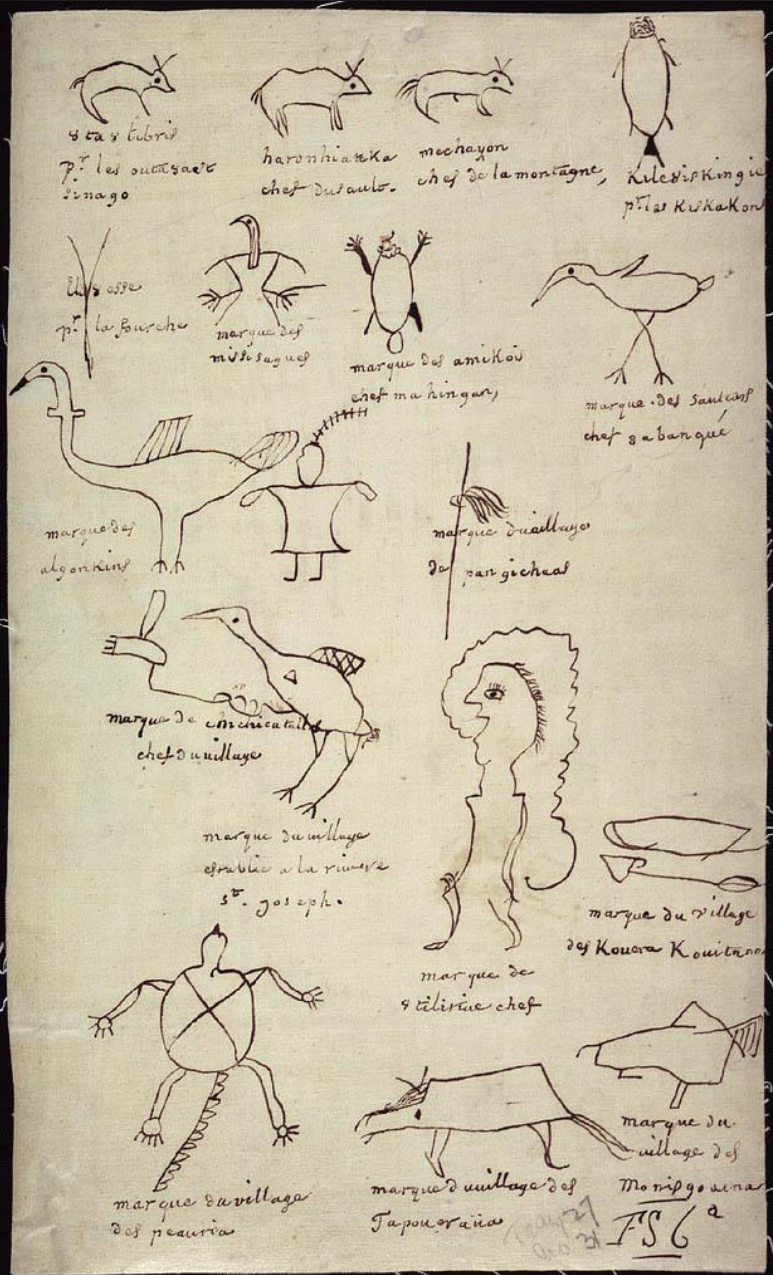 8ta8libris
pr les outa8acs
sinago
haronhiateka
chef du sault.
mechayon
chef de la montagne,
Kile8iskingie
pr les KisKaKons
Eli8asse
pr la fourche
marque des
missisagues
marque des amikois
chef mahingan,
marque des saulteurs
chef 8abanqué
marque des
algonkins
marque du village
de pangicheas
marque de chichicatalo
chef du village
marque du village
establie a la riviere
St. joseph.
marque du village
des Kouera Kouitanon
marque de
8tilirine chef
marque du village
des peauria
marque du village des
Tapoueraüa
marque du
village des
Monisgoaena
FS6a